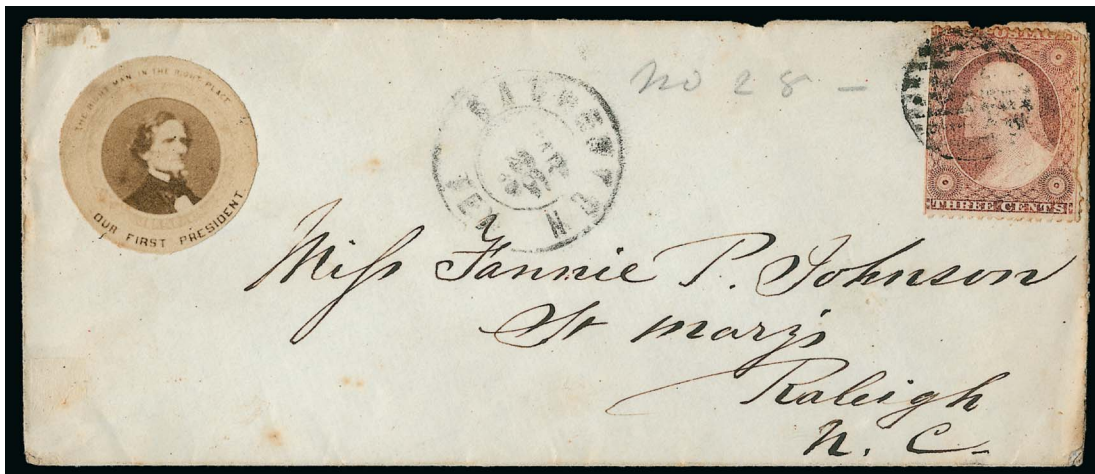 THE RIGHT MAN IN THE RIGHT PLACE
OUR FIRST PRESIDENT
TEN
No 28 -
THREE CENTS
Miss Fannie P. Johnson
St Mary's
Raleigh
N. C.